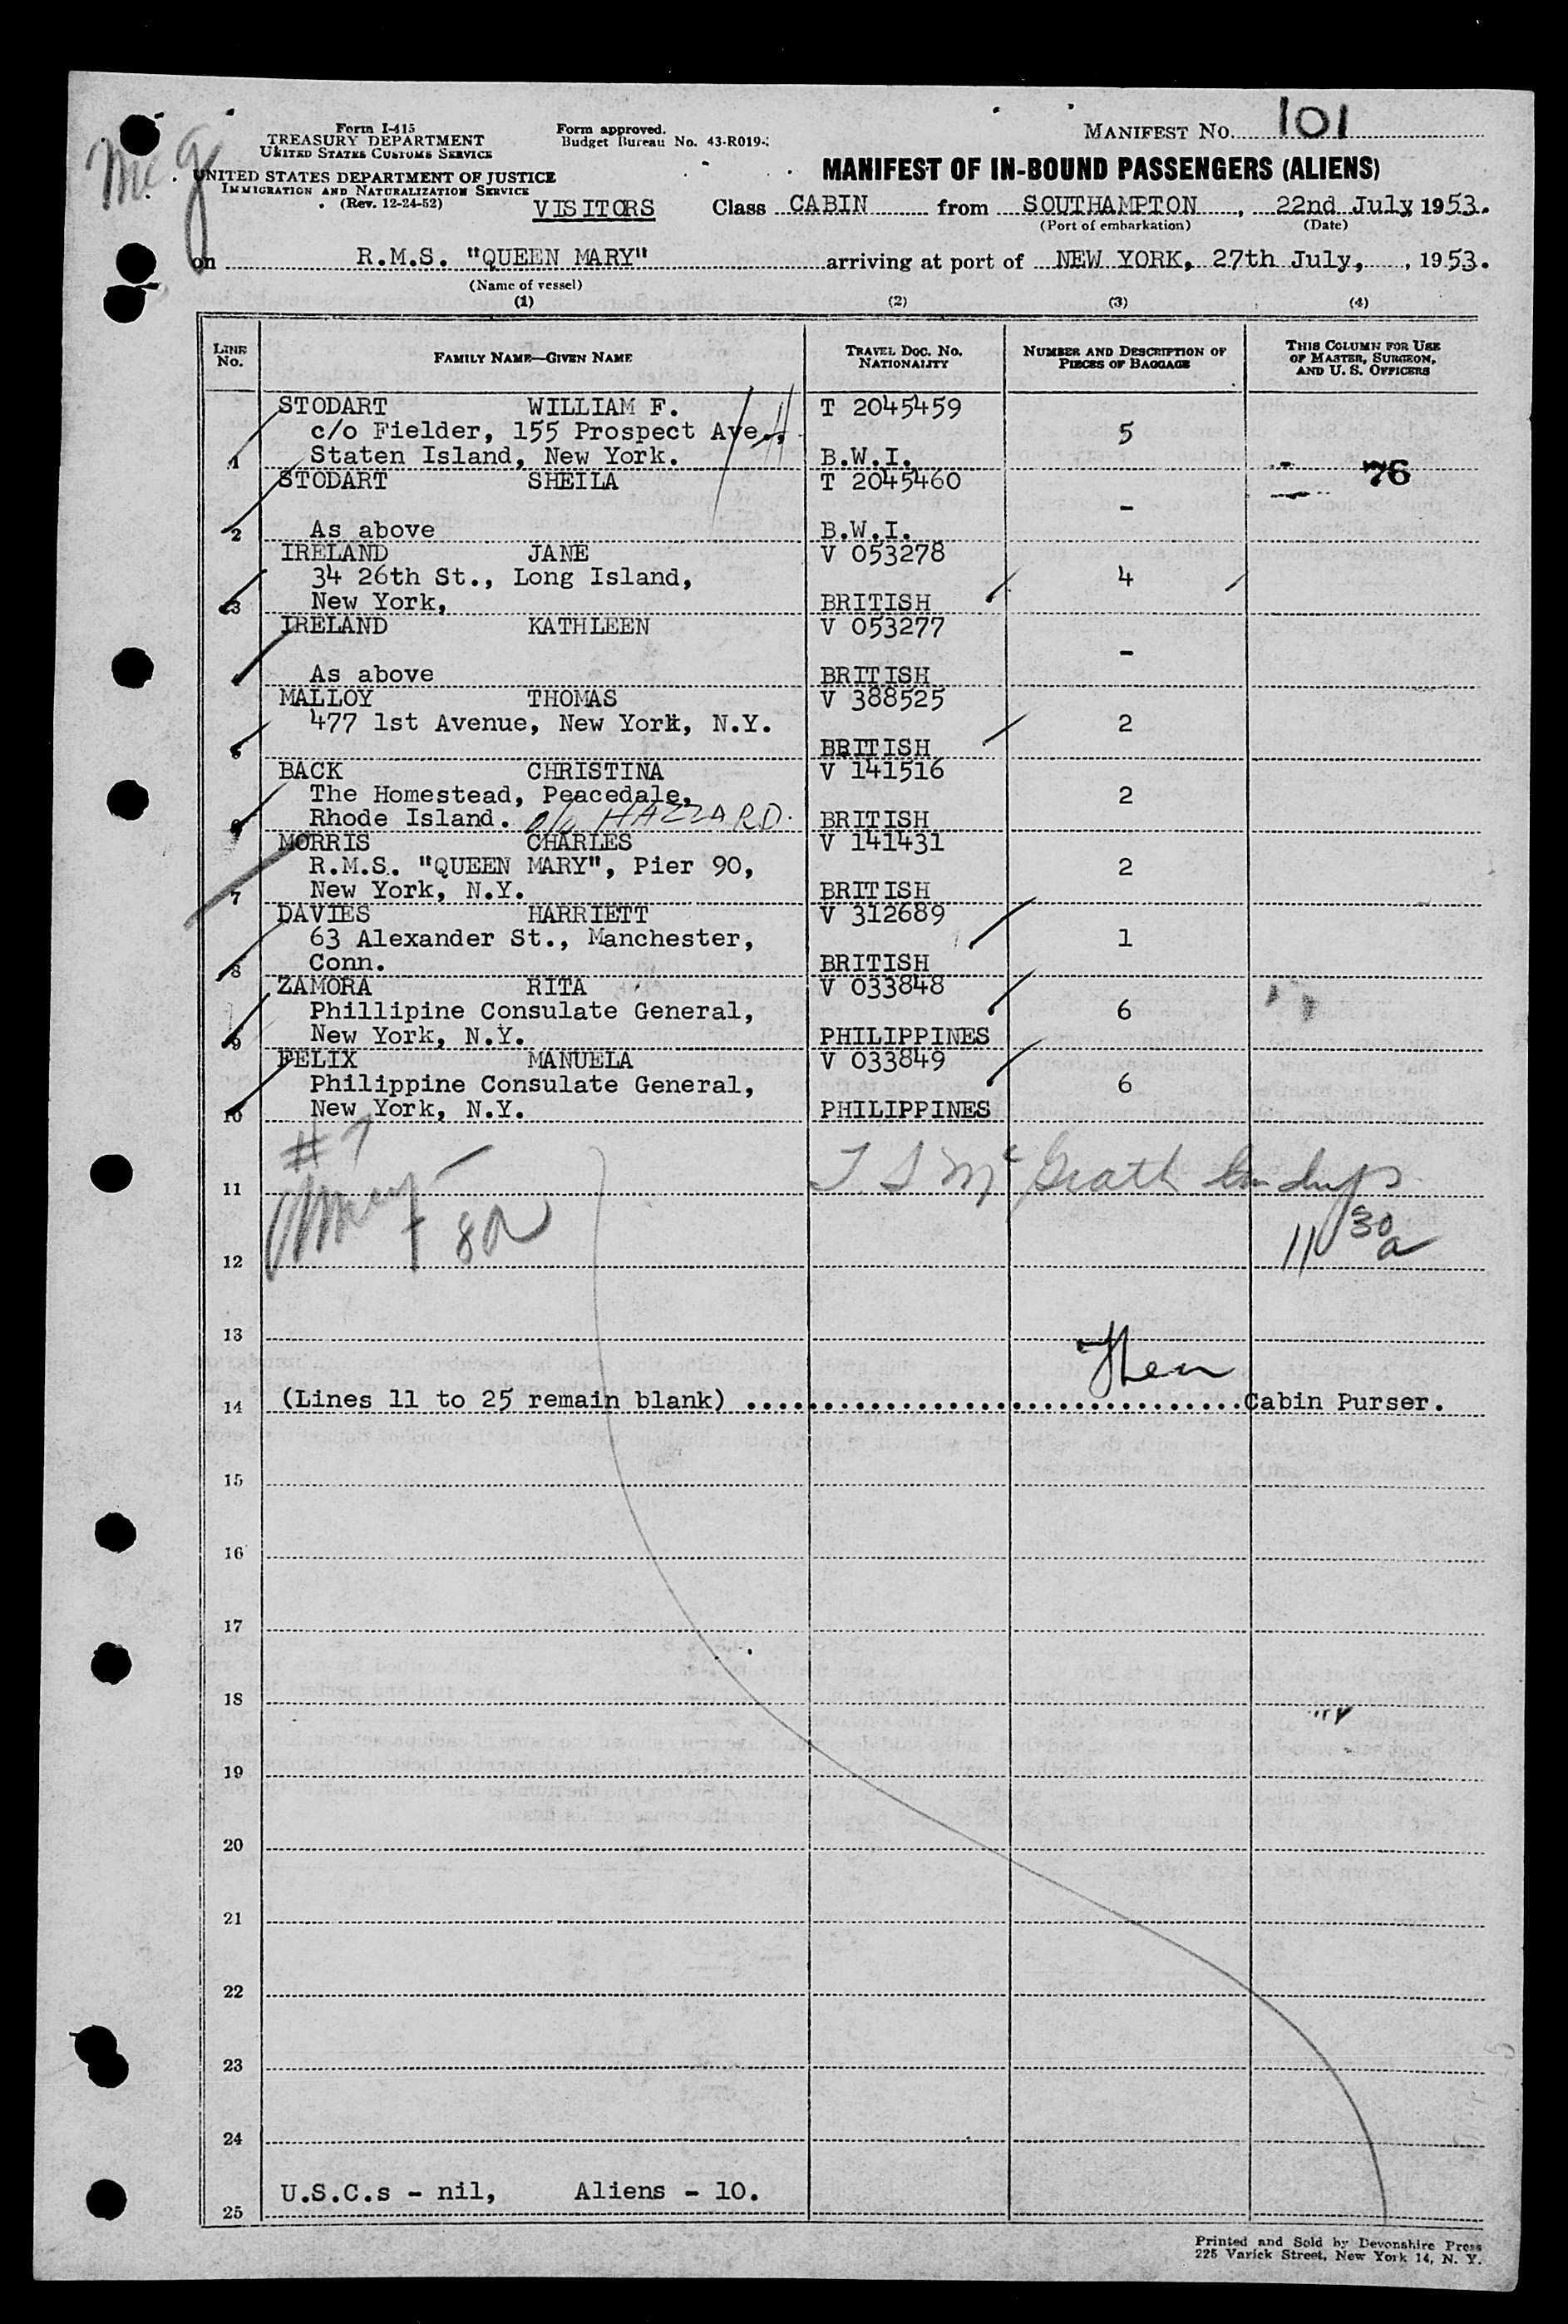 Mc. G
Form I-415
TREASURY DEPARTMENT
UNITED STATES CUSTOMS SERVICE
UNITED STATES DEPARTMENT OF JUSTICE
IMMIGRATION AND NATURALIZATION SERVICE
(Rev. 12-24-52)
Form approved.
Budget Bureau No. 43-R019-
MANIFEST No. 101
MANIFEST OF IN-BOUND PASSENGERS (ALIENS)
VISITORS Class CABIN from SOUTHAMPTON, 22nd July, 1953.
(Port of embarkation) (Date)
on R.M.S. "QUEEN MARY" arriving at port of NEW YORK, 27th July, , 1953.
(Name of vessel)
(1) (2) (3) (4)
LINE No. FAMILY NAME—GIVEN NAME TRAVEL DOC. No. NATIONALITY NUMBER AND DESCRIPTION OF PIECES OF BAGGAGE THIS COLUMN FOR USE OF MASTER, SURGEON, AND U. S. OFFICERS
STODART WILLIAM F. T 2045459
c/o Fielder, 155 Prospect Ave., 5
1 Staten Island, New York. B.W.I.
STODART SHEILA T 2045460 76
-
2 As above B.W.I.
IRELAND JANE V 053278
34 26th St., Long Island, 4
3 New York, BRITISH
IRELAND KATHLEEN V 053277
-
4 As above BRITISH
MALLOY THOMAS V 388525
477 1st Avenue, New York, N.Y. 2
5 BRITISH
BACK CHRISTINA V 141516
The Homestead, Peacedale, 2
6 Rhode Island. c/o HAZZARD. BRITISH
MORRIS CHARLES V 141431
R.M.S. "QUEEN MARY", Pier 90, 2
7 New York, N.Y. BRITISH
DAVIES HARRIETT V 312689
63 Alexander St., Manchester, 1
8 Conn. BRITISH
ZAMORA RITA V 033848
Phillipine Consulate General, 6
9 New York, N.Y. PHILIPPINES
FELIX MANUELA V 033849
Philippine Consulate General, 6
10 New York, N.Y. PHILIPPINES
#7
11 T. S McGrath
12 11 30 a
13
14 (Lines 11 to 25 remain blank) ................................Cabin Purser.
15
16
17
18
19
20
21
22
23
24
25 U.S.C.s - nil, Aliens - 10.
Printed and Sold by Devonshire Press
225 Varick Street, New York 14, N. Y.